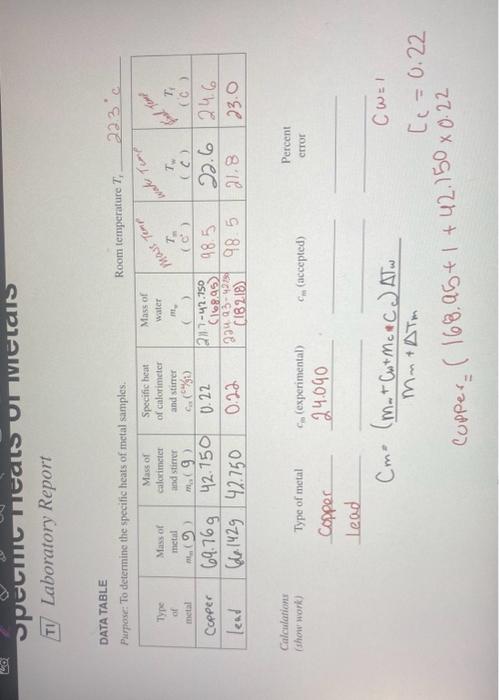 Specific Heats of Metals
TI Laboratory Report
DATA TABLE
Purpose: To determine the specific heats of metal samples.
Room temperature Tr 22.3°c
Type of metal
Mass of metal mm (g)
Mass of calorimeter and stirrer mcs (g)
Specific heat of calorimeter and stirrer
Mass of water mw ( )
Mass temp Tm (c°)
Water Temp Tw (c)
Temp Tf (c)
Copper 69.76g 42.750 0.22 211.7-42.750 (168.95) 98.5 22.6 24.6
lead 42.750 0.22 (182.18) 98.5 21.8 23.0
Calculations
(show work)
Type of metal
cm (experimental)
cm (accepted)
Percent error
Copper 24.090
Lead
Cm = (mw + Cw + mc • Cc) ΔTw
mm + ΔTm
Cw = 1
Cc = 0.22
Copper = (168.95 + 1 + 42.150 x 0.22